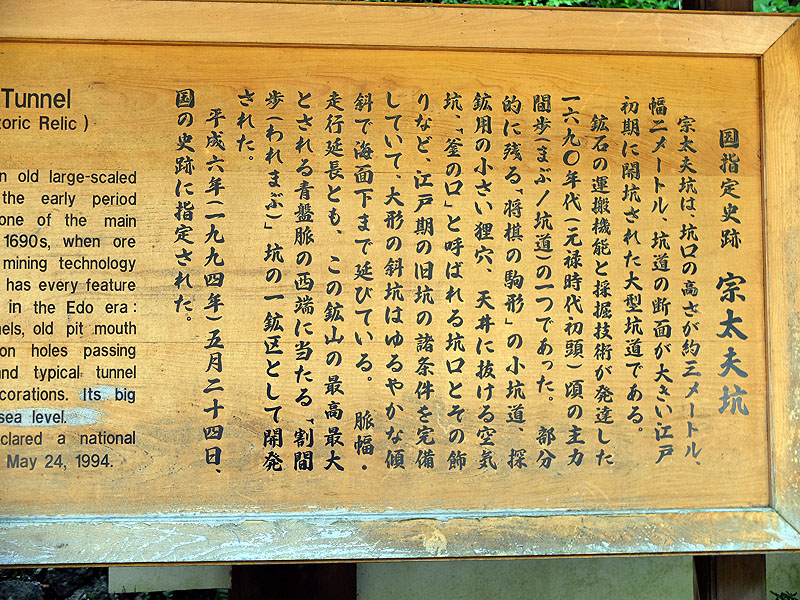 国指定史跡　宗太夫坑
宗太夫坑は、坑口の高さが約三メートル、
幅二メートル、坑道の断面が大きい江戸
初期に開坑された大型坑道である。
鉱石の運搬機能と採掘技術が発達した
一六九〇年代(元禄時代初頭)頃の主力
間歩(まぶ/坑道)の一つであった。部分
的に残る「将棋の駒形」の小坑道、探
鉱用の小さい狸穴、天井に抜ける空気
坑、「釜の口」と呼ばれる坑口とその飾
りなど、江戸期の旧坑の諸条件を完備
していて、大形の斜坑はゆるやかな傾
斜で海面下まで延びている。脈幅・
走行延長とも、この鉱山の最高最大
とされる青盤脈の西端に当たる「割間
歩(われまぶ)」坑の一鉱区として開発
された。
平成六年(一九九四年)五月二十四日、
国の史跡に指定された。
Tunnel
toric Relic )
n old large-scaled
the early period
one of the main
1690s, when ore
mining technology
has every feature
in the Edo era :
nels, old pit mouth
on holes passing
and typical tunnel
corations. Its big
sea level.
clared a national
May 24, 1994.